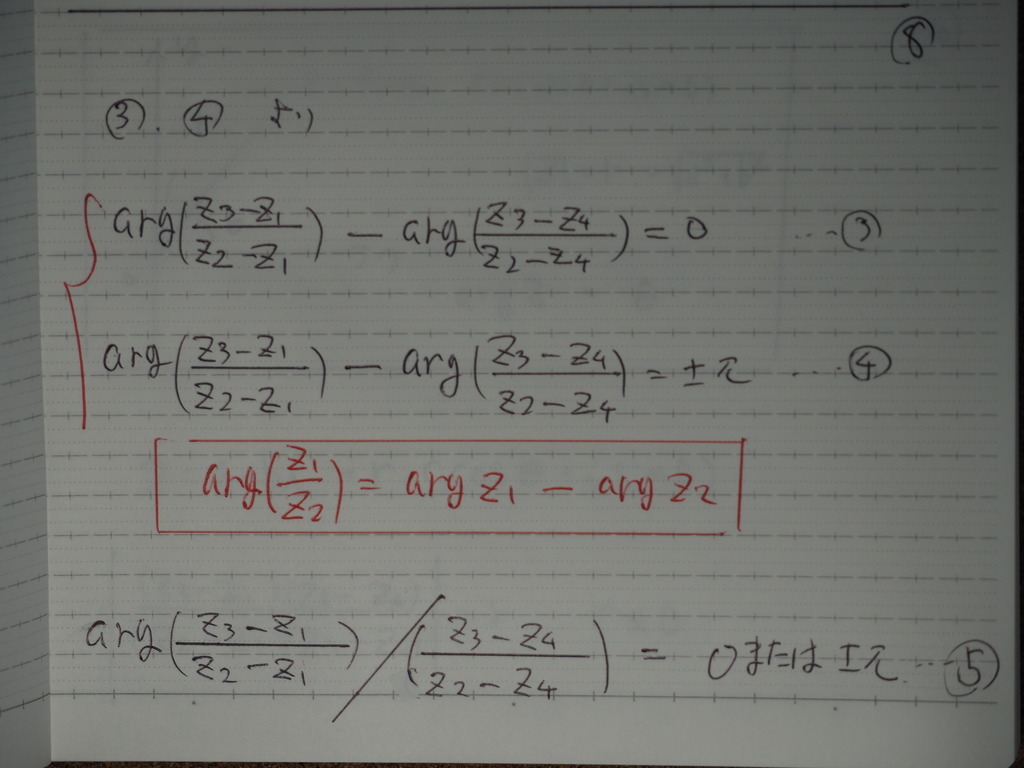 ⑧
③. ④ より
arg((z3-z1)/(z2-z1)) - arg((z3-z4)/(z2-z4)) = 0 ...③
arg((z3-z1)/(z2-z1)) - arg((z3-z4)/(z2-z4)) = ±π ...④
arg(z1/z2) = arg z1 - arg z2
arg((z3-z1)/(z2-z1)) / ((z3-z4)/(z2-z4)) = 0または ±π ...⑤